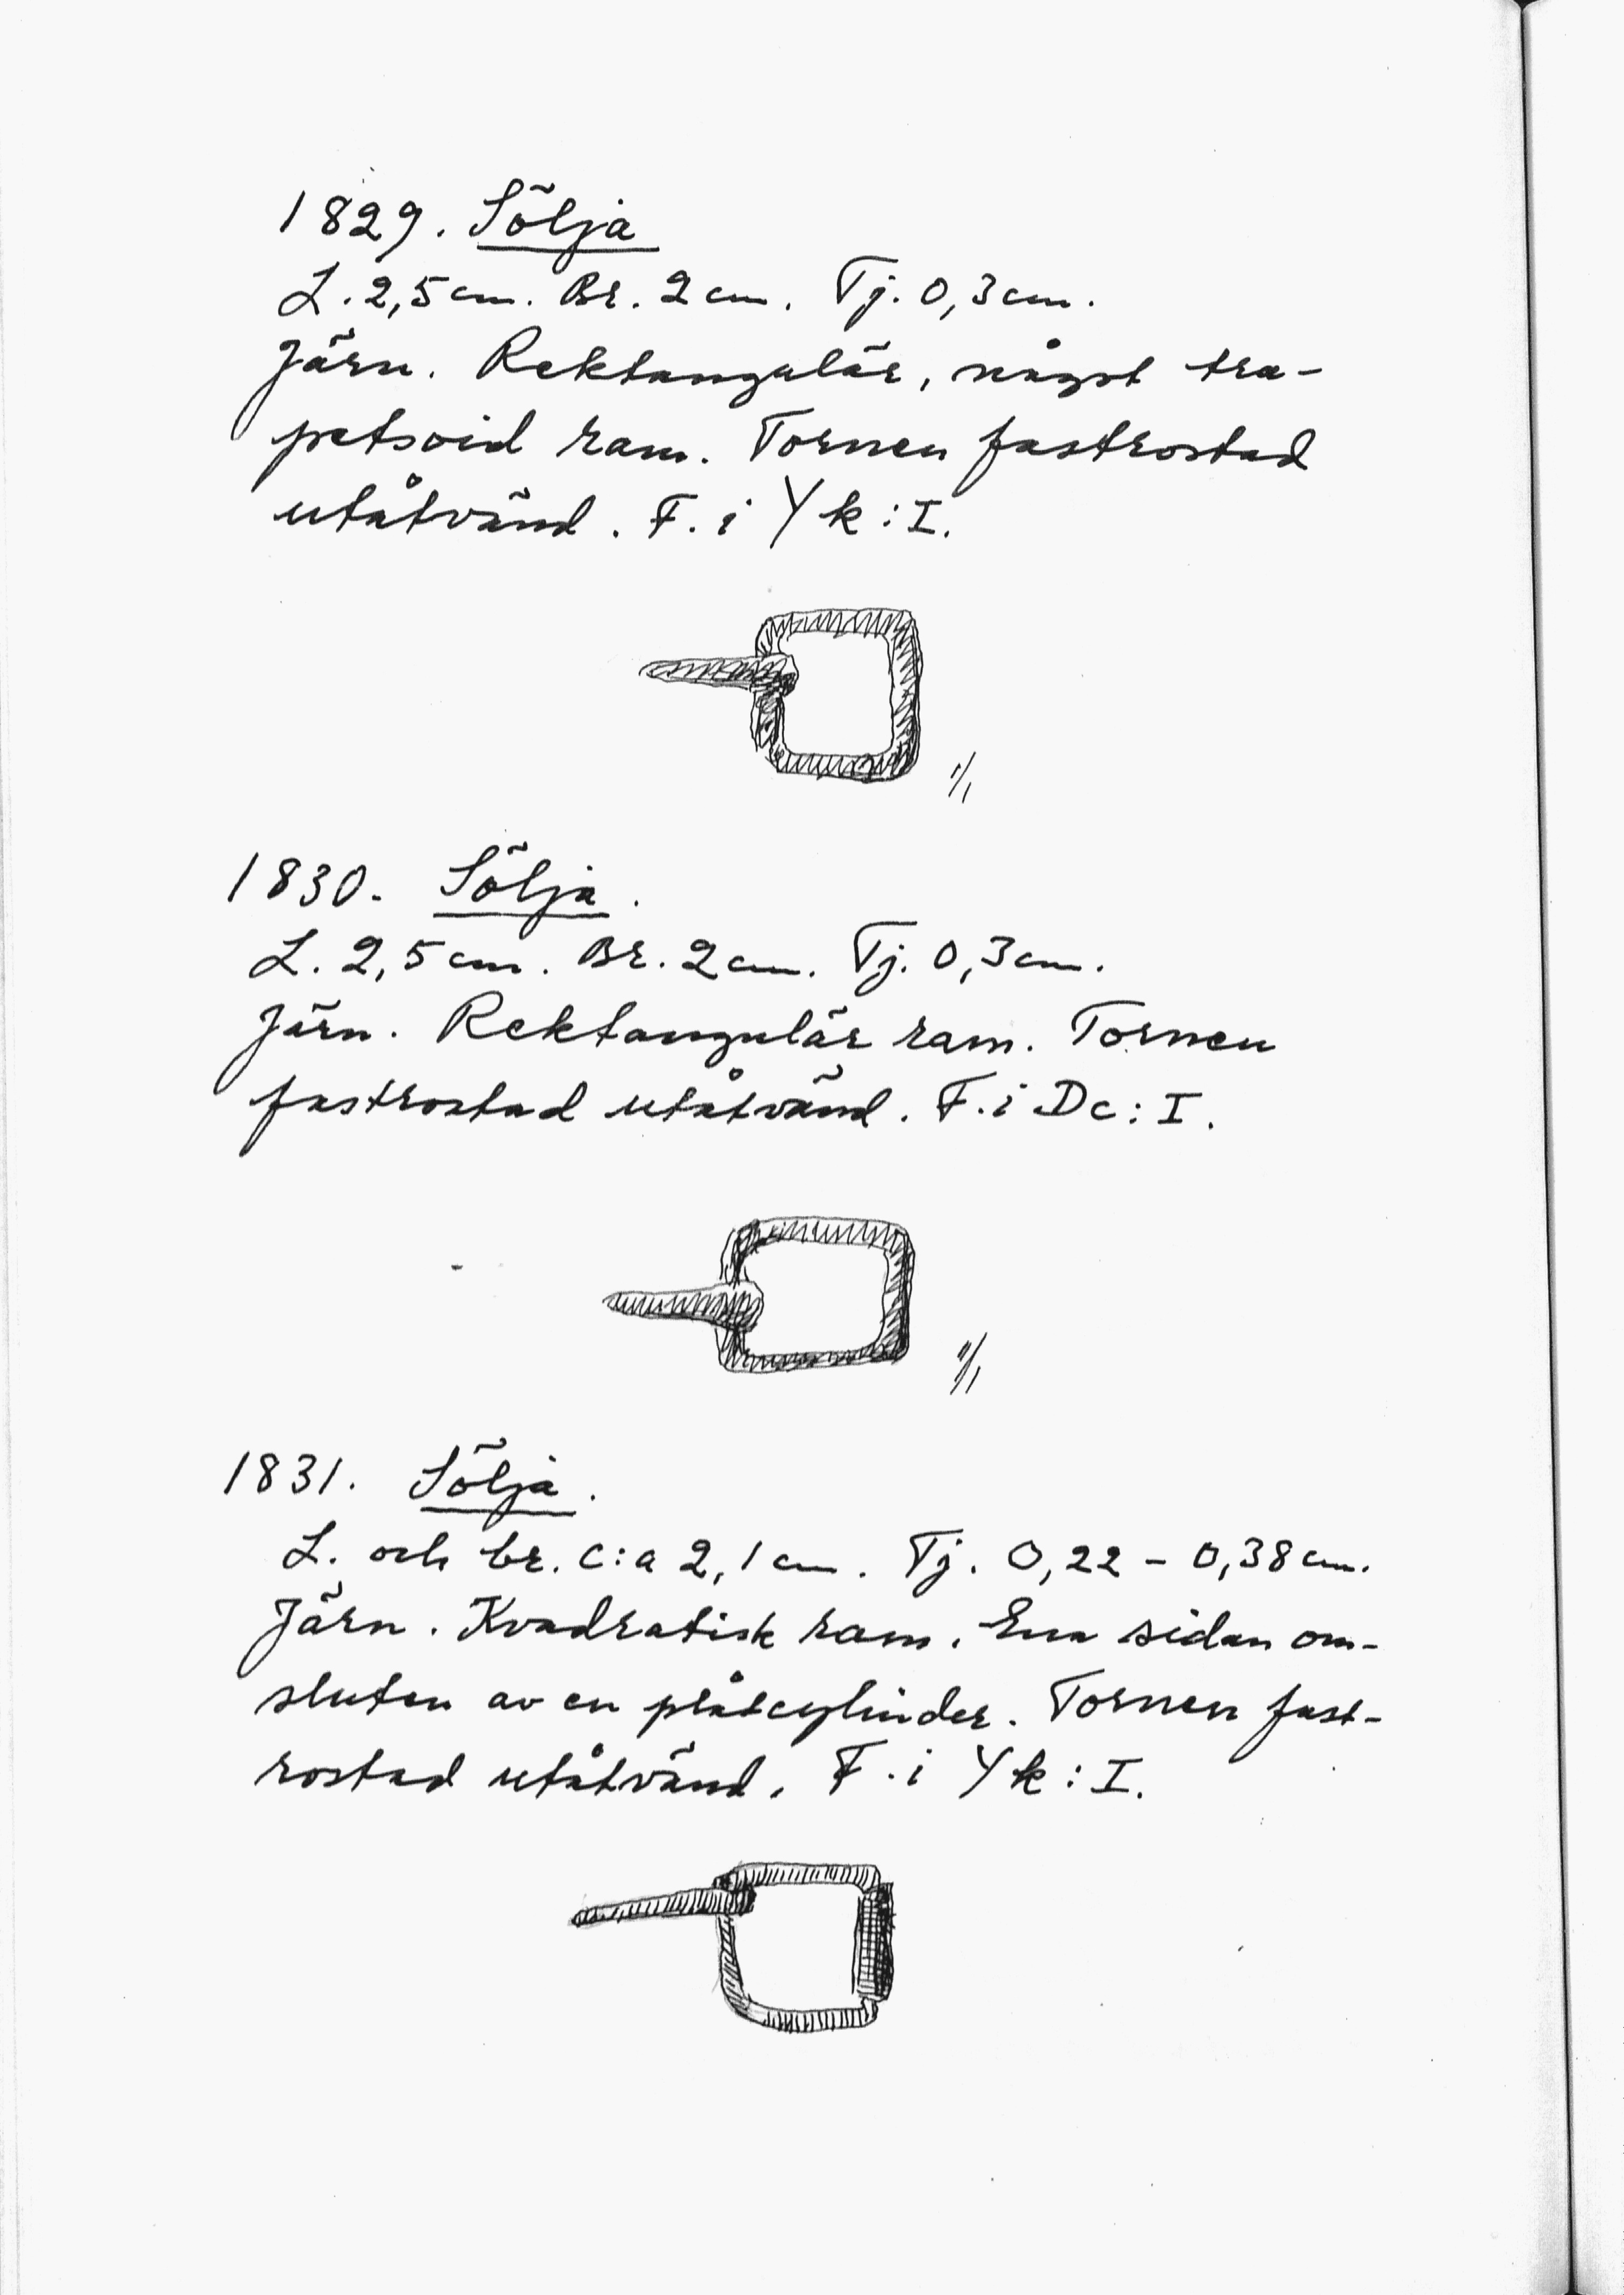 1829. Sölja
L. 2,5 cm. Br. 2 cm. Tj. 0,3 cm.
Järn. Rektangulär, något tra-
petsoid ram. Tornen fastrostad
utåtvänd. F. i Yk:I.
1/1
1830. Sölja.
L. 2,5 cm. Br. 2 cm. Tj. 0,3 cm.
Järn. Rektangulär ram. Tornen
fastrostad utåtvänd. F. i Dc:I.
1/1
1831. Sölja.
L. och br. c:a 2,1 cm. Tj. 0,22 - 0,38 cm.
Järn. Kvadratisk ram. Ena sidan om-
sluten av en plåtcylinder. Tornen fast-
rostad utåtvänd. F. i Yk:I.